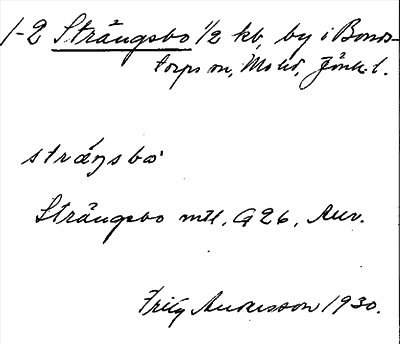 1-2 Strängsbo 1/2 kb, by i Bonds-
torps sn, Mo hd, Jönk. l.
stráŋsbo
Strängsbo mtl, G 26,
Fritz Andersson 1930.